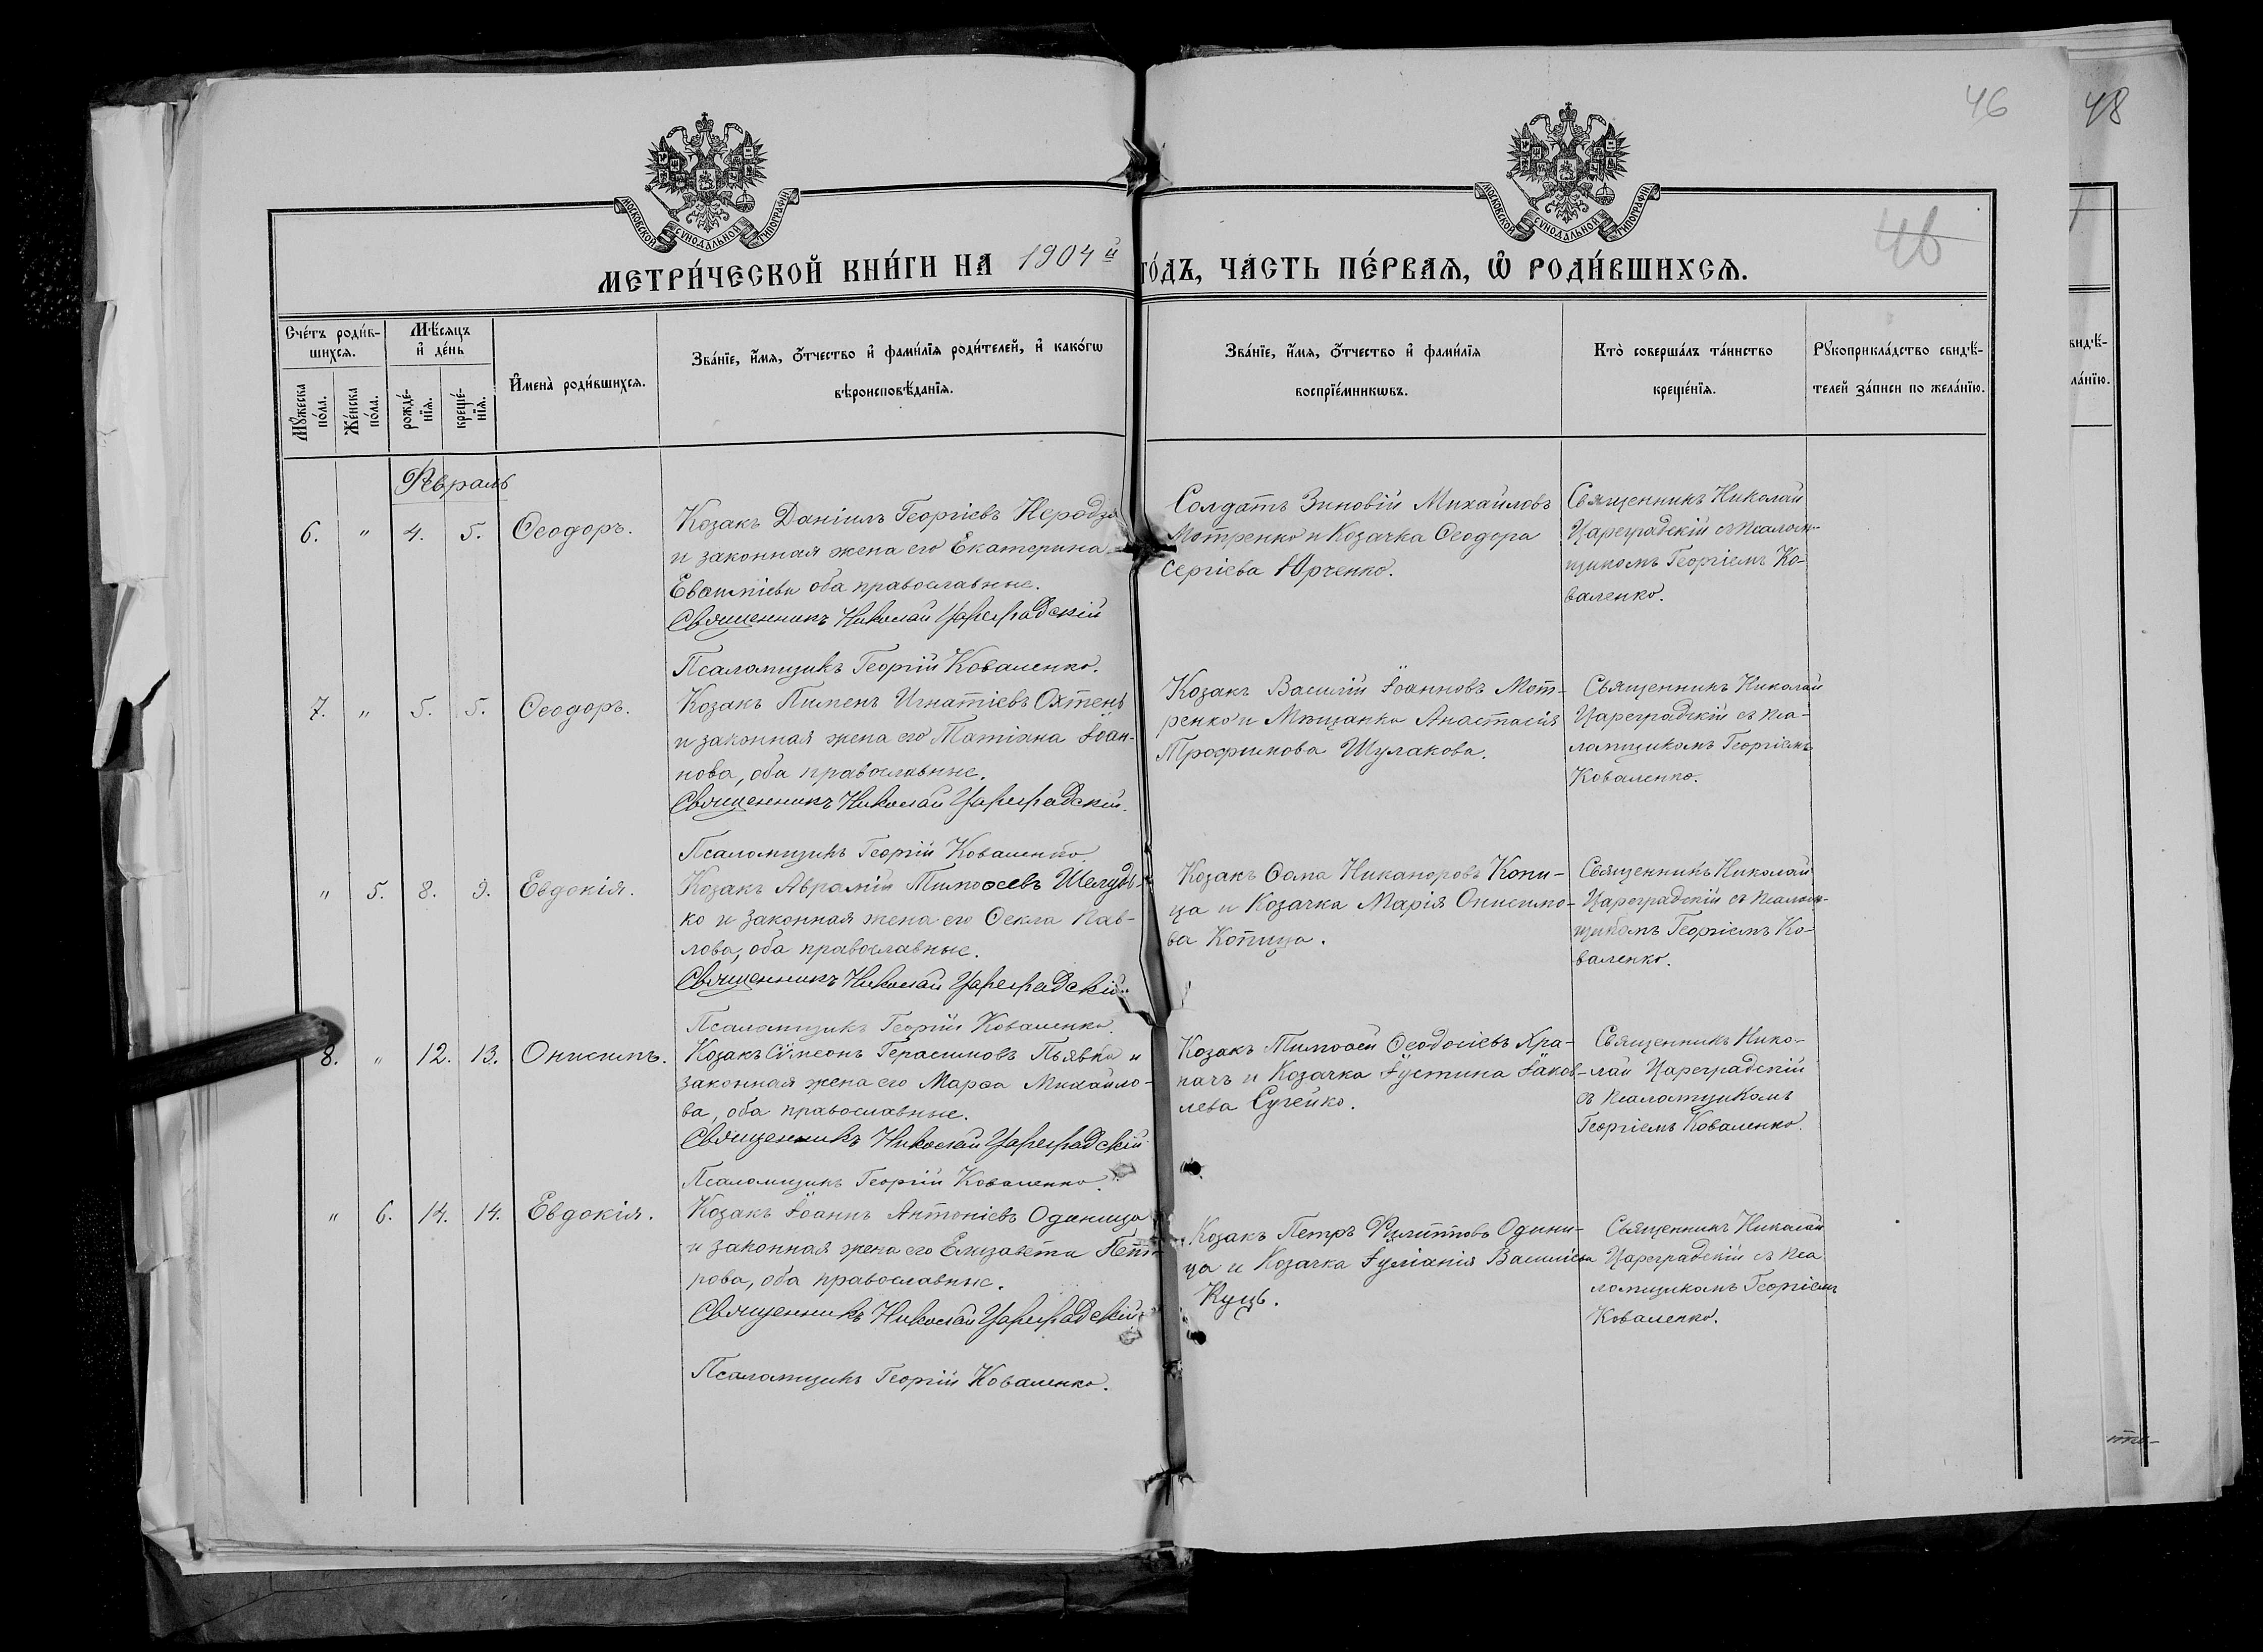 46
48
МОСКОВСКОЙ СѴНОДАЛЬНОЙ ТИПОГРАФІИ
МОСКОВСКОЙ СѴНОДАЛЬНОЙ ТИПОГРАФІИ
46
МЕТРИ́ЧЕСКОЙ КНИ́ГИ НА 1904й ГО́ДЪ, ЧА́СТЬ ПЕ́РВАЯ, Ѿ РОДИ́ВШИХСЯ.
Сче́тъ роди́в-
шихся.
Мѣ́сяцъ
и҆ де́нь
Мꙋжеска
по́ла.
Же́нска
по́ла.
рожде́-
нїѧ.
креще́-
нїѧ.
И҆мена̀ роди́вшихсѧ.
Зва́нїе, и҆́мѧ, ѻ҆́тчество и҆ фами́лїѧ роди́телей, и҆ како́гѡ
вѣроисповѣ́данїѧ.
Зва́нїе, и҆́мѧ, ѻ҆́тчество и҆ фами́лїѧ
воспрїе́мникѡвъ.
Кто̀ соверша́лъ та́инство
креще́нїѧ.
Рꙋкоприкла́дство свидѣ́-
телей за́писи по жела́нїю.
видѣ́-
ла́нїю.
Февраль
6. " 4. 5. Ѳеодоръ.
Козакъ Даніилъ Георгіевъ
и законная жена его Екатерина
оба православные.
Священникъ Николай Цареградскій
Псаломщикъ Георгій Коваленко.
Солдатъ Зиновій Михайловъ
Мотренко и Козачка Ѳеодора
Сергіева Юрченко.
Священникъ Николай
Цареградскій съ Псалом-
щикомъ Георгіемъ Ко-
валенко.
7. " 5. 5. Ѳеодоръ.
Козакъ Пименъ Игнатіевъ Охтень
и законная жена его Татіана Іоан-
нова, оба православные.
Священникъ Николай Цареградскій.
Псаломщикъ Георгій Коваленко.
Козакъ Василій Іоанновъ Мот-
ренко и Мѣщанка Анастасія
Трофимова Шулакова.
Священникъ Николай
Цареградскій съ Пса-
ломщикомъ Георгіемъ
Коваленко.
" 5. 8. 9. Евдокія.
Козакъ Аврамій Тимоѳеевъ Шелудь-
ко и законная жена его Ѳекла Пав-
лова, оба православные.
Священникъ Николай Цареградскій.
Псаломщикъ Георгій Коваленко.
Козакъ Ѳома Никаноровъ Копи-
ца и Козачка Марія Онисимо-
ва Копица.
Священникъ Николай
Цареградскій съ Псалом-
щикомъ Георгіемъ Ко-
валенко.
8. " 12. 13. Онисимъ.
Козакъ Сѵмеонъ Герасимовъ Пьявка и
законная жена его Марѳа Михайло-
ва, оба православные.
Священникъ Николай Цареградскій
Псаломщикъ Георгій Коваленко.
Козакъ Тимоѳей Ѳеодосіевъ Хра-
пачъ и Козачка Іустина Іаков-
лева Сугейко.
Священникъ Нико-
лай Цареградскій
съ Псаломщикомъ
Георгіемъ Коваленко.
" 6. 14. 14. Евдокія.
Козакъ Іоаннъ Антоніевъ Одиница
и законная жена его Елизавета Пет-
рова, оба православные.
Священникъ Николай Цареградскій
Псаломщикъ Георгій Коваленко.
Козакъ Петръ Филипповъ Одини-
ца и Козачка Іуліанія Василіева
Куць.
Священникъ Николай
Цареградскій съ Пса
ломщикомъ Георгіемъ
Коваленко.